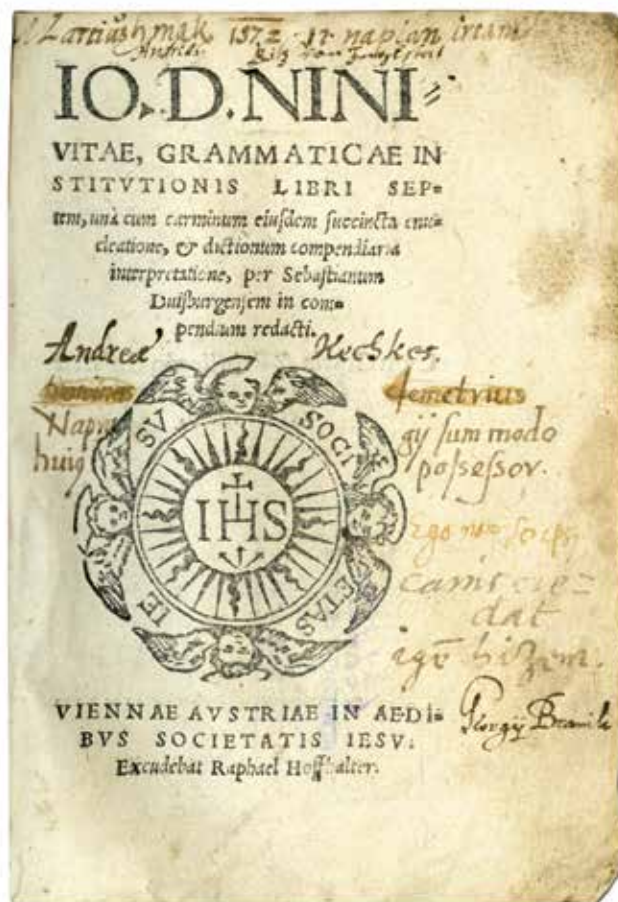 Martiusnak 1572 17 napian irtam
IO. D. NINI⸗
VITAE, GRAMMATICAE IN
STITVTIONIS LIBRI SEP⸗
tem, unà cum carminum eiusdem succincta enu⸗
cleatione, & dictionum compendiaria
interpretatione, per Sebastianum
Duisburgensem in com⸗
pendium redacti.
Andreæ Kechkes.
demetrius
gij sum modo
huiq possessor.
SOCIETAS IESV
IHS
Ergo
dat
igỹ hiZem.
VIENNAE AVSTRIAE IN AEDI⸗
BVS SOCIETATIS IESV.
Excudebat Raphael Hoffhalter.
Georgij